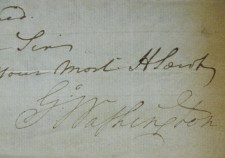 ed.
Sir
Your most H Servt
Go Washington